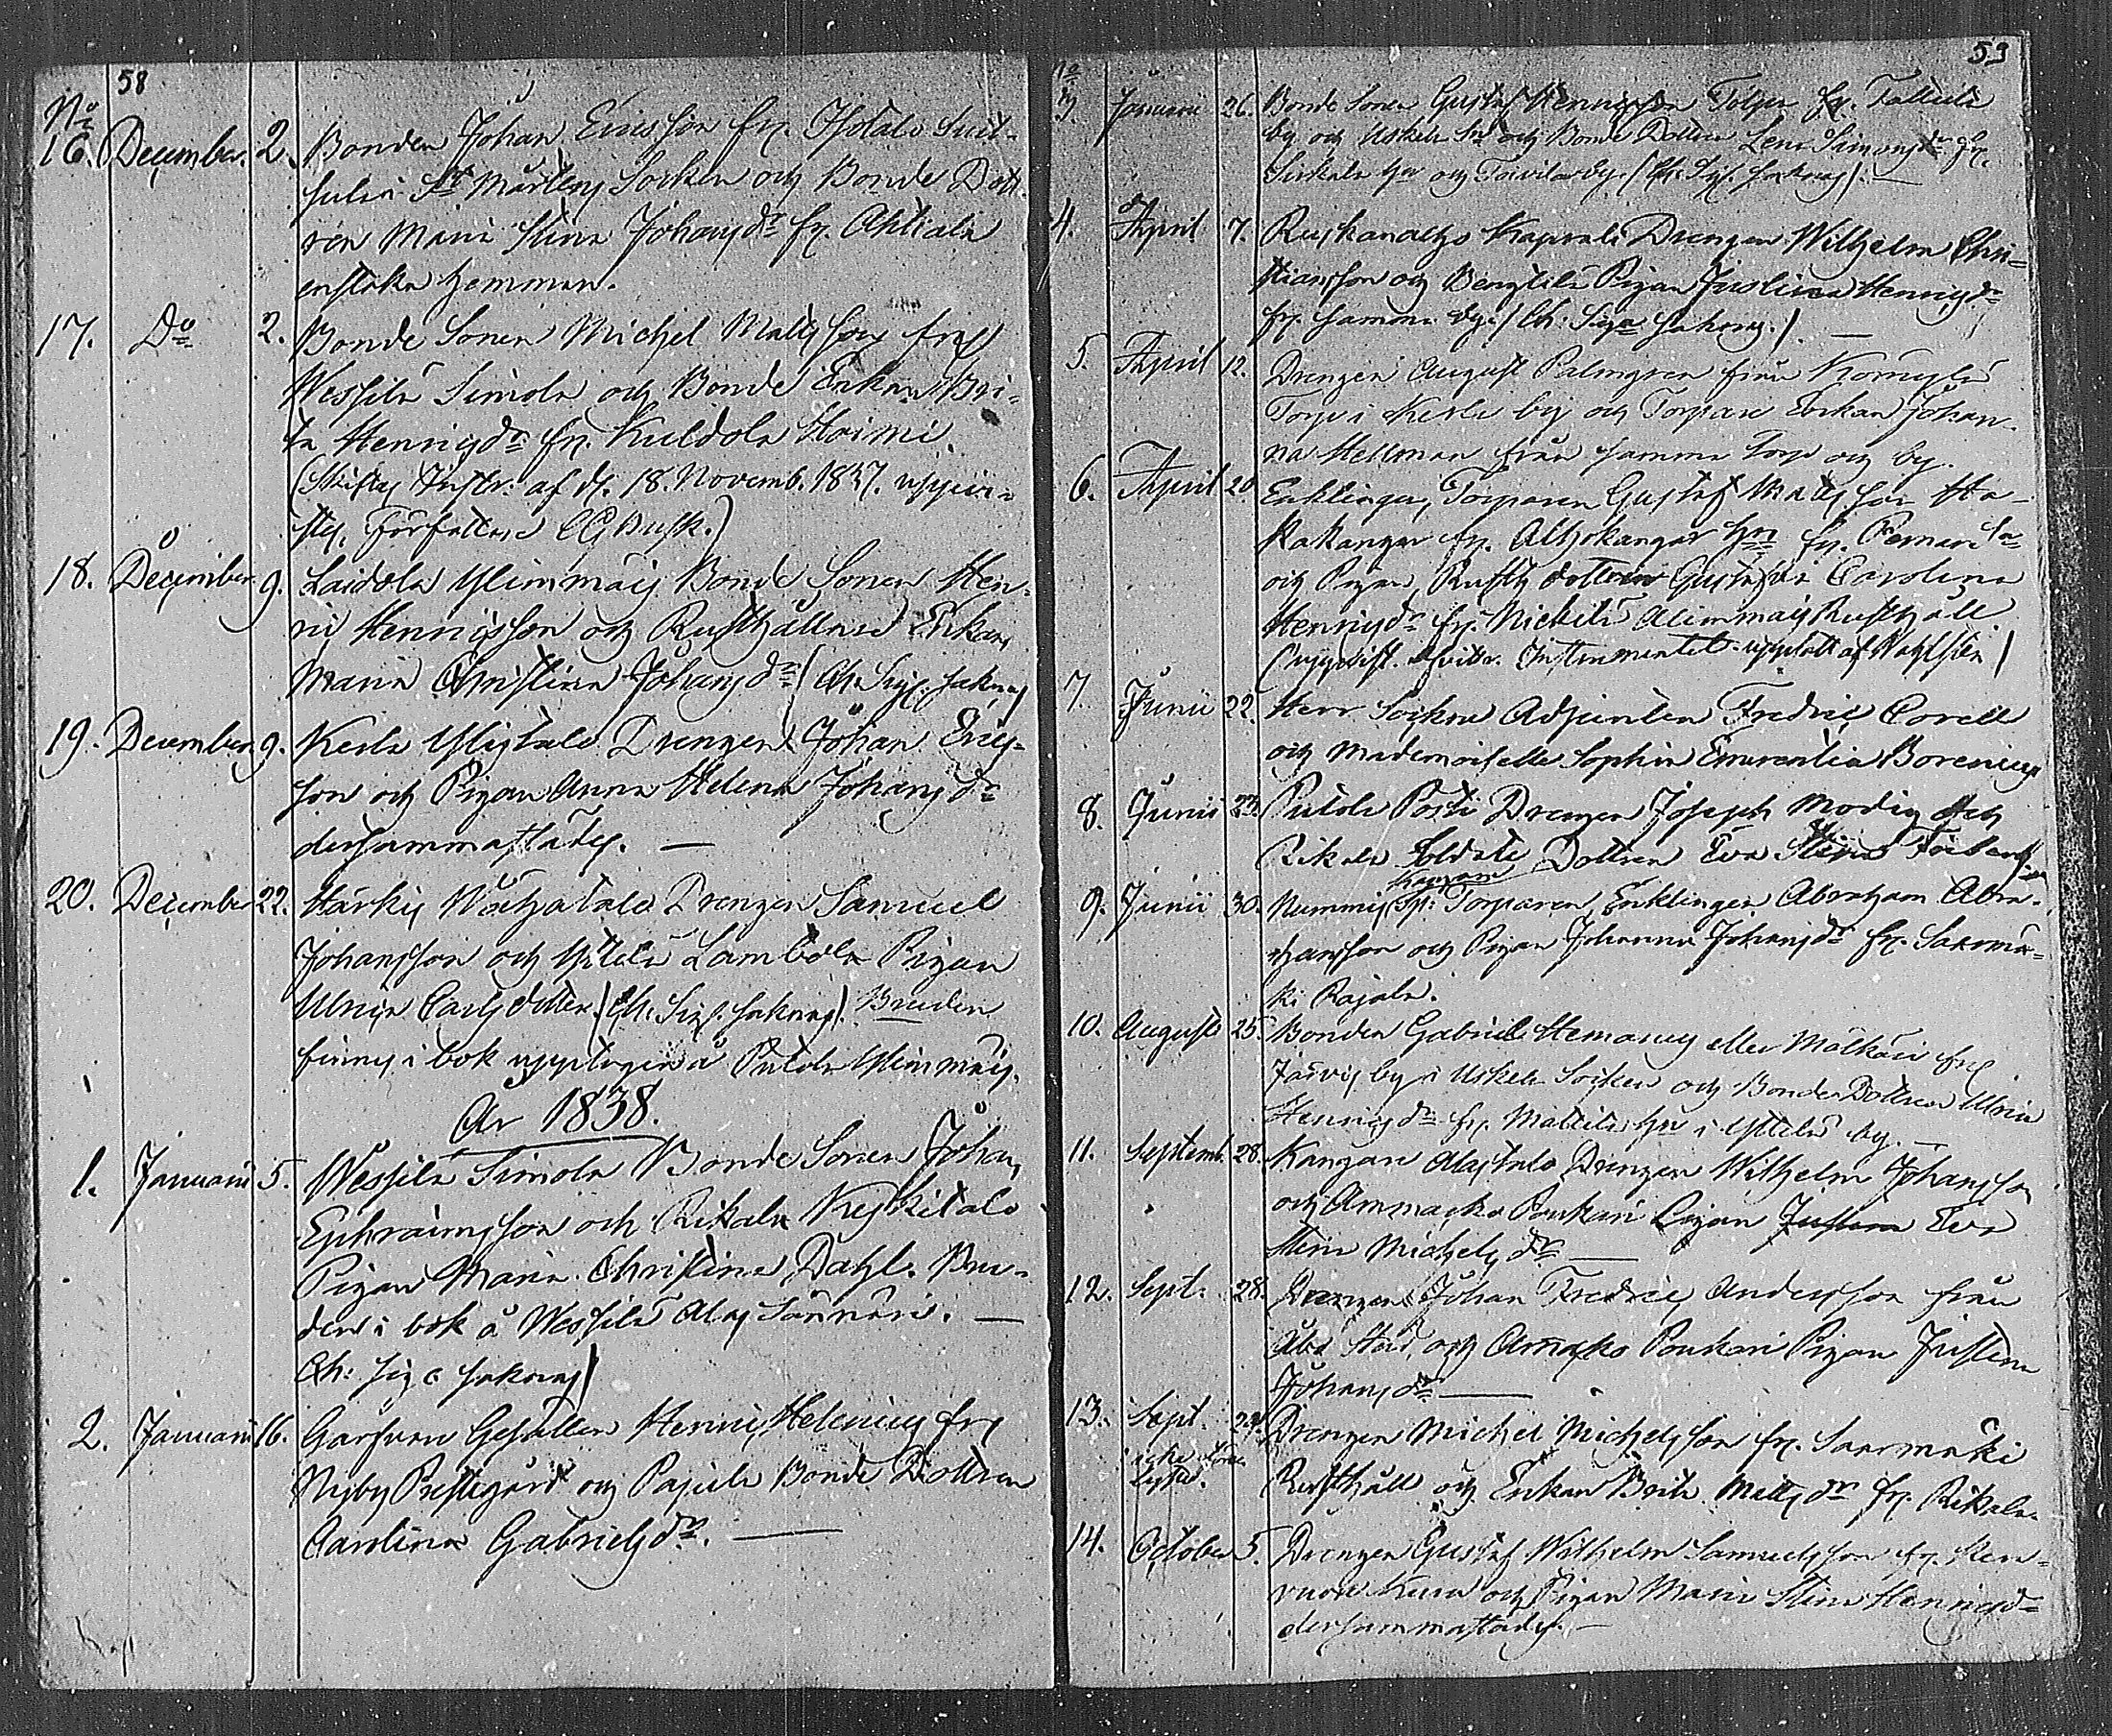 58
No
16. December. 2. Bonden Johan Ericsson fr. Isotalo
Sct Mårtens Socken och Bonde Dott-
ren Maria Stina Johansdr fr. Ahtiala
enstaka hemman.
17. Do 2. Bonde Sonen Michel Mattsson från
Wessilä Simola och Bonde Enkan Bri-
ta Henricsdr fr. Kuldola Heimi.
(Skiftes Instr. af d. 18. Novemb. 1837. uppvi-
stes, Författare)
18. December 9. Kaidola Ylimmäis Bonde Sonen Hen-
ric Henricsson och Rusthållare Enkan
Maria Christina Johansdr (
19. December 9. Kesla Ylistalo Drengen Johan Erics-
son och Pigan Anna Helena Johansdr
dersammastädes. —
20. December 22. Härkis Wähätalo Drengen Samuel
Johansson och Yttelä Lambola Pigan
Ulrica Carlsdotter. Bruden
finnes i bok upptagen å Putola Ylimmäis.
År 1838.
1. Januarii 5. Wessilä Simola Bonde Sonen Johan
Ephraimsson och Rikala Keskitalo
Pigan Maria Christina Dahl. Bru-
den i bok å Wessilä Alas Sännäri. —
2. Januarii 16. Garfvare Gesällen Henric Helenius från
Nyby Prestegård och Pajula Bonde Dottren
Carolina Gabrielsdr. —
59
No
3. Januarii 26. Bonde Sonen Gustaf Henricsson Tolpo fr. Tattula
by och Uskela Sn och Bonde Dottren Lena Simonsdr fr.
Sirkala hn och Toivila by. —
4. April 7. Ruskanalho Kaprals Drengen Wilhelm Chri-
stiansson och Bengtilä Pigan Justina Henricsdr
fr. samma by. —
5. April 12. Drengen August Palmgren från
Torp i Kesla by och Torpare Enkan Johan-
na Hellman från samma Torp och by.
6. April 20 Enklingen, Torparen Gustaf Mattsson Ha-
kakangar fr. Alhokangar hn fr. Pemar Sn
och Pigan, Rusth. dottren Gustafva Carolina
Henricsdr fr. Nickilä Alimmais Rusthåll.
7. Junii 22. Herr Sockne Adjuncten Fredric Corell
och Mademoiselle Sophia Emerentia Borenius
8. Junii 23. Putola Posti Drengen Joseph Modig och
Rikala Soldats Dottren Eva Stina
9. Junii 30. Nummis Torparen, Enklingen Abraham Abra-
hamsson och Pigan Johanna Johansdr fr. Saarmä-
ki Rajala.
10. August 25. Bonden Gabriel Hemanus eller Mälkäri från
Järvis by i Uskela Socken och Bonde Dottren Ulrica
Henricsdr fr. Mattila hn i Yttelä by. —
11. Septemb. 28. Kangare Alastalo Drengen Wilhelm Johansson
och Ammasko Poukari Pigan Justina Eva
Stina Michelsdr —
12. Sept. 28. Drengen Johan Fredric Andersson från
Åbo Stad, och Amasko Poukari Pigan Justina
Johansdr —
13. Sept. 29. Drengen Michel Michelsson fr. Saarmäki
Rusthåll och Enkan Brita Mattsdr fr. Rikala.
14. October 5. Drengen Gustaf Wilhelm Samuelsson fr.
och Pigan Maria Stina Henricsdr
dersammastädes. —